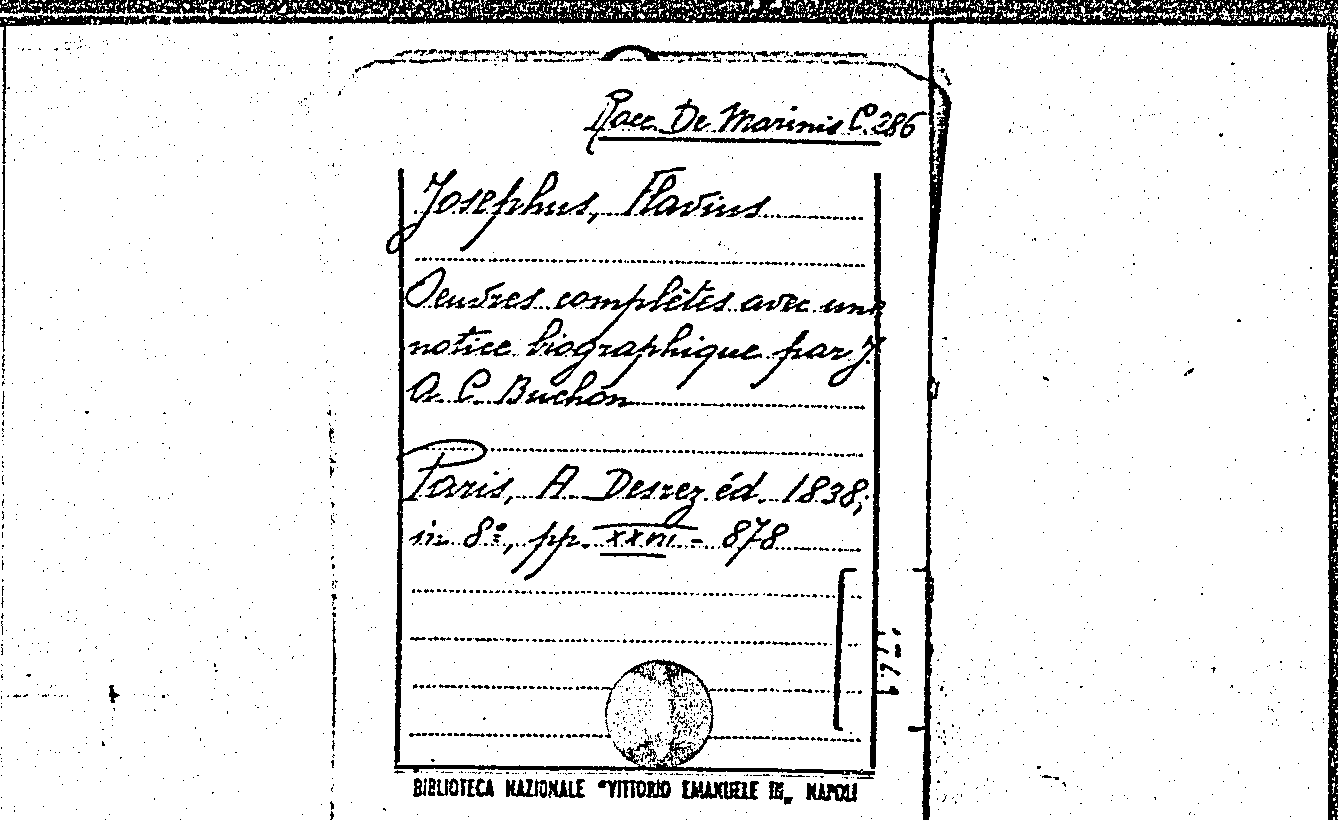 Racc. De Marinis C. 286
Josephus, Flavius
Oeuvres complètes avec une
notice biographique par J.
A. C. Buchon
Paris, A. Desrez éd. 1838;
in 8º, pp. XXIII - 878
BIBLIOTECA NAZIONALE "VITTORIO EMANUELE III„ NAPOLI